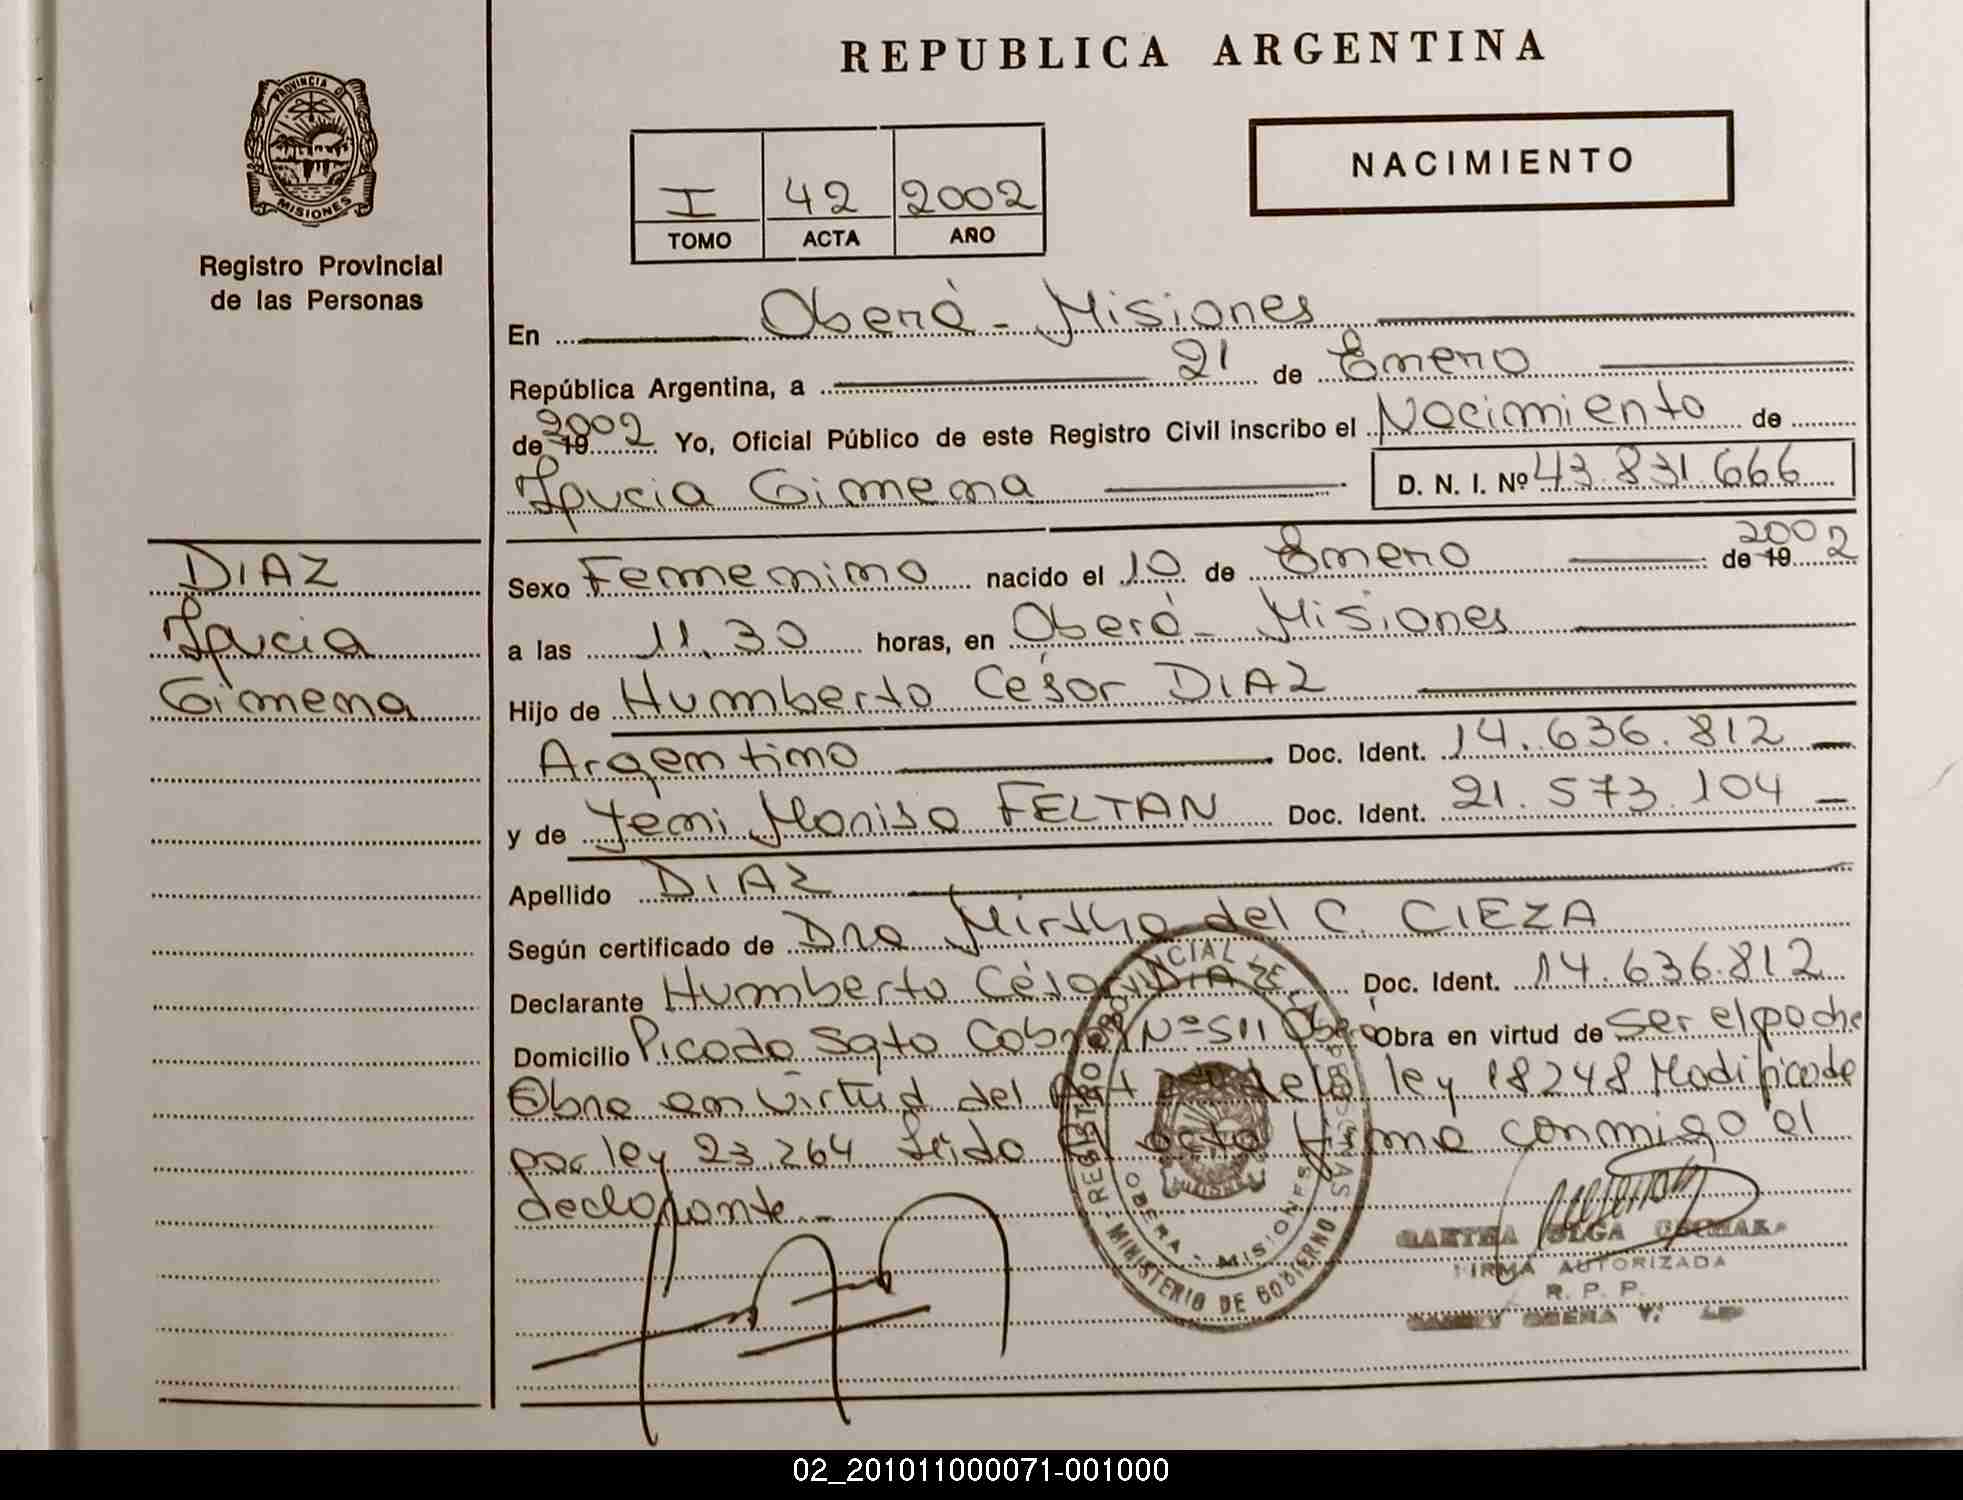 REPUBLICA ARGENTINA
PROVINCIA DE
MISIONES
Registro Provincial
de las Personas
I 42 2002
TOMO ACTA AÑO
NACIMIENTO
En Oberá - Misiones
República Argentina, a 21 de Enero
de 19 2002 Yo, Oficial Público de este Registro Civil inscribo el Nacimiento de
Lucia Gimena D. N. I. Nº 43.831.666
DIAZ
Lucia
Gimena
Sexo Femenino nacido el 10 de Enero de 19 2002
a las 11.30 horas, en Oberá - Misiones
Hijo de Humberto César DIAZ
Argentino Doc. Ident. 14.636.812
y de Yeni Marisa FELTAN Doc. Ident. 21.573.104
Apellido DIAZ
Según certificado de Dra Mirtha del C. CIEZA
Declarante Humberto César DIAZ Doc. Ident. 14.636.812
Domicilio Picada Sgto Cabral Nº 511 Oberá Obra en virtud de ser el padre
Obra en virtud del Art de la ley 18248 Modificada
por ley 23.264 Leída el acta firma conmigo el
declarante.-
REGISTRO PROVINCIAL DE LAS PERSONAS
OBERA - MISIONES
MINISTERIO DE GOBIERNO
OLGA
FIRMA AUTORIZADA
R. P. P.
OBERA
02_201011000071-001000